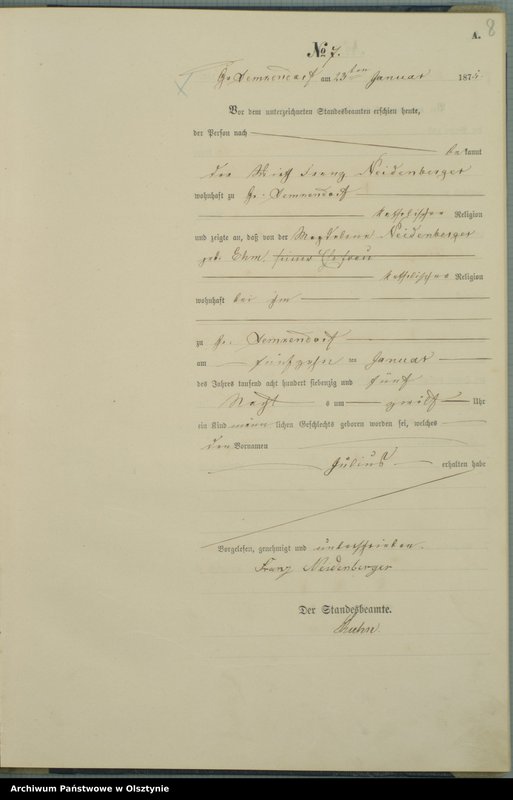 8
A.
No 7.
Gr. Lemkendorf am 23ten Januar 1875.
Vor dem unterzeichneten Standesbeamten erschien heute,
der Person nach
bekannt
der Wirth Franz Neidenberger
wohnhaft zu Gr. Lemkendorf
katholischer Religion
und zeigte an, daß von der Magdalena Neidenberger
geb. Ehm, seiner Ehefrau
katholischer Religion
wohnhaft bei ihm
zu Gr. Lemkendorf
am fünfzehn ten Januar
des Jahres tausend acht hundert siebenzig und fünf
Nacht s um zwölf Uhr
ein Kind männ lichen Geschlechts geboren worden sei, welches
den Vornamen
Julius erhalten habe
Vorgelesen, genehmigt und unterschrieben.
Franz Neidenberger
Der Standesbeamte.
Kuhn.
Archiwum Państwowe w Olsztynie